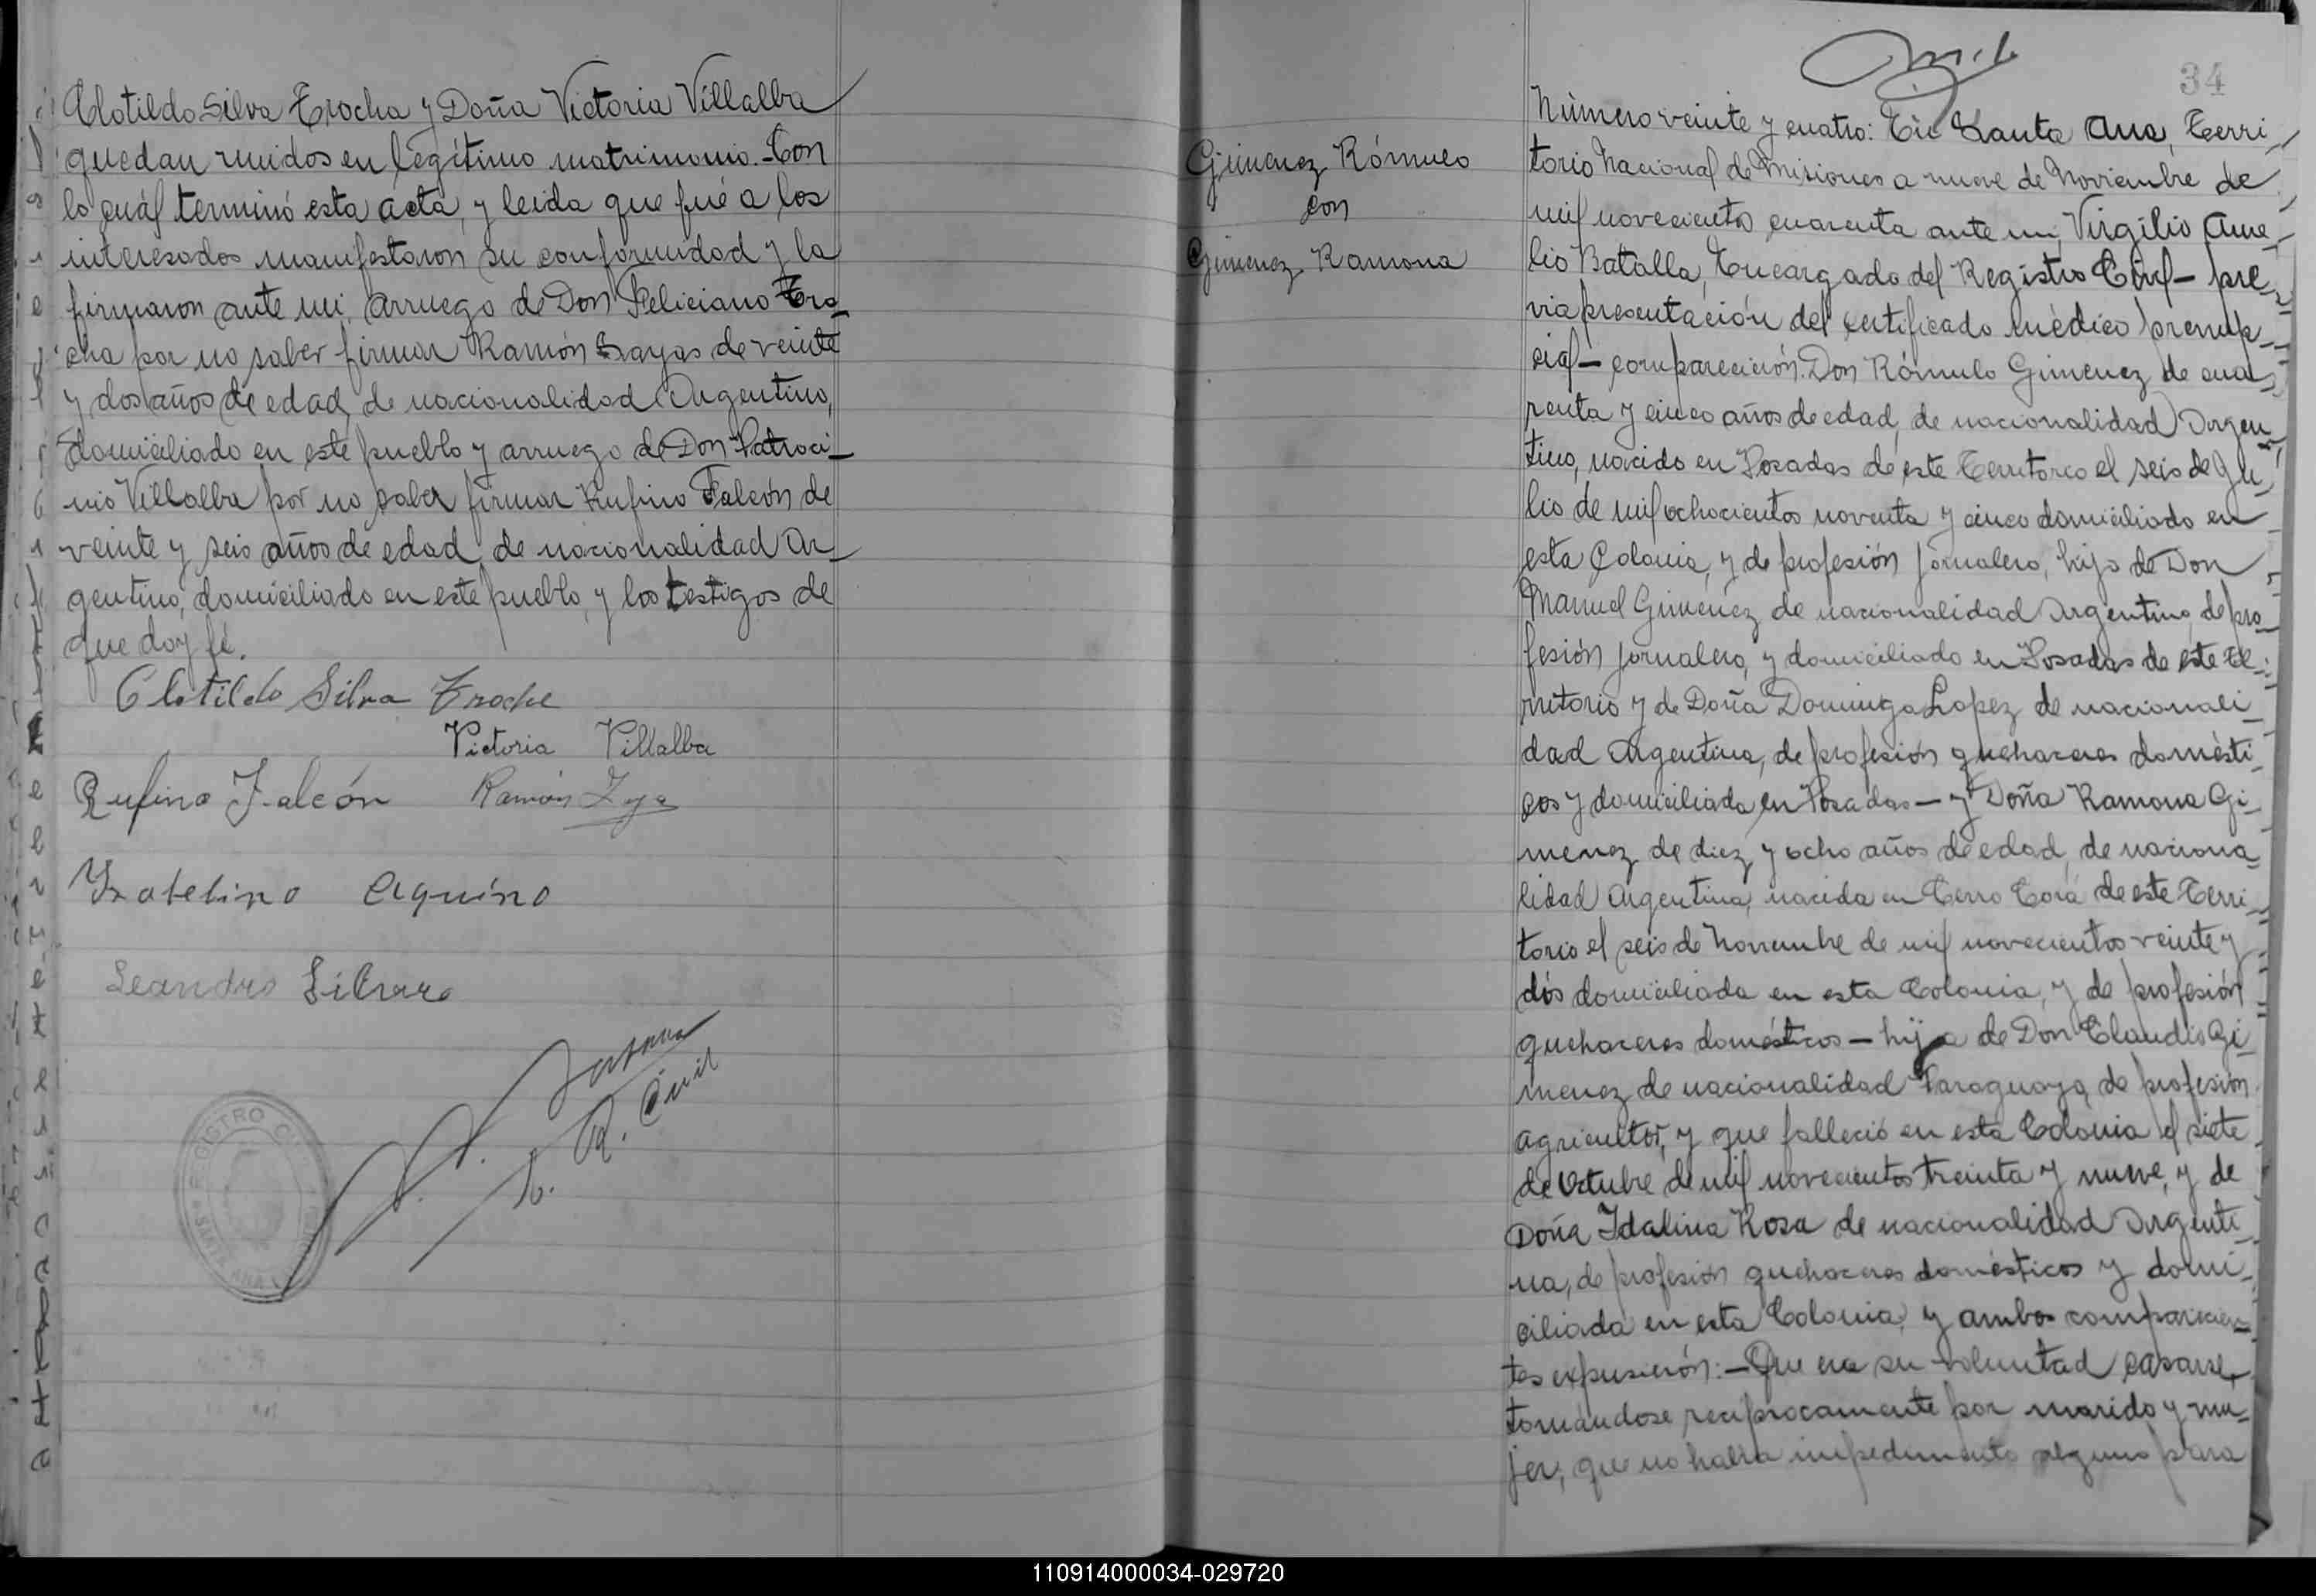 Clotildo Silva Trocha y Doña Victoria Villalba
quedan unidos en legítimo matrimonio.- Con
lo cuál terminó esta acta, y leida que fué a los
interesados manifestaron su conformidad y la
firmaron ante mi, arruego de Don Feliciano Tro-
cha por no saber firmar Ramón Zayas de veinte
y dos años de edad, de nacionalidad Argentino,
domiciliado en este pueblo y arruego de Don Patroci-
nio Villalba por no saber firmar Rufino Falcón de
veinte y seis años de edad, de nacionalidad Ar-
gentino, domiciliado en este pueblo, y los testigos de
que doy fé.
Clotildo Silva Troche
Victoria Villalba
Rufino Falcón Ramón
Aquino
Leandro
R. Civil
REGISTRO
SANTA ANA
34
Gimenez Rómulo
con
Gimenez Ramona
Número veinte y cuatro: En Santa Ana, Terri-
torio Nacional de Misiones a nueve de Noviembre de
mil novecientos cuarenta ante mi, Virgilio Ame-
lio Batalla, Encargado del Registro Civil - pre-
via presentación del certificado médico prenup-
cial - comparecieron: Don Rómulo Gimenez de cua-
renta y cinco años de edad, de nacionalidad Argen-
tino, nacido en Posadas de este Territorio el seis de Ju-
lio de mil ochocientos noventa y cinco domiciliado en
esta Colonia, y de profesión jornalero, hijo de Don
Manuel Gimenez de nacionalidad Argentino, de pro-
fesión jornalero, y domiciliado en Posadas de este Te-
rritorio y de Doña Dominga Lopez de nacionali-
dad Argentina, de profesión quehaceres domésti-
cos y domiciliada en Posadas - y Doña Ramona Gi-
menez de diez y ocho años de edad, de naciona-
lidad Argentina, nacida en Cerro Corá de este Terri-
torio el seis de Noviembre de mil novecientos veinte y
dós domiciliada en esta Colonia, y de profesión
quehaceres domésticos - hija de Don Claudio Gi-
menez de nacionalidad Paraguaya, de profesión
agricultor, y que falleció en esta Colonia el siete
de Octubre de mil novecientos treinta y nueve, y de
Doña Idalina Rosa de nacionalidad Argenti-
na, de profesión quehaceres domésticos y domi-
ciliada en esta Colonia, y ambos comparecien-
tes expusierón: - Que era su voluntad casarse,
tomándose reciprocamente por marido y mu-
jer, que no habia impedimento alguno para
110914000034-029720